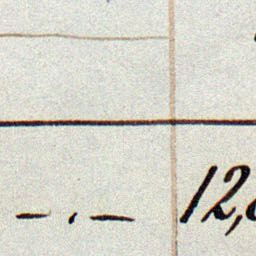 – . – 12,